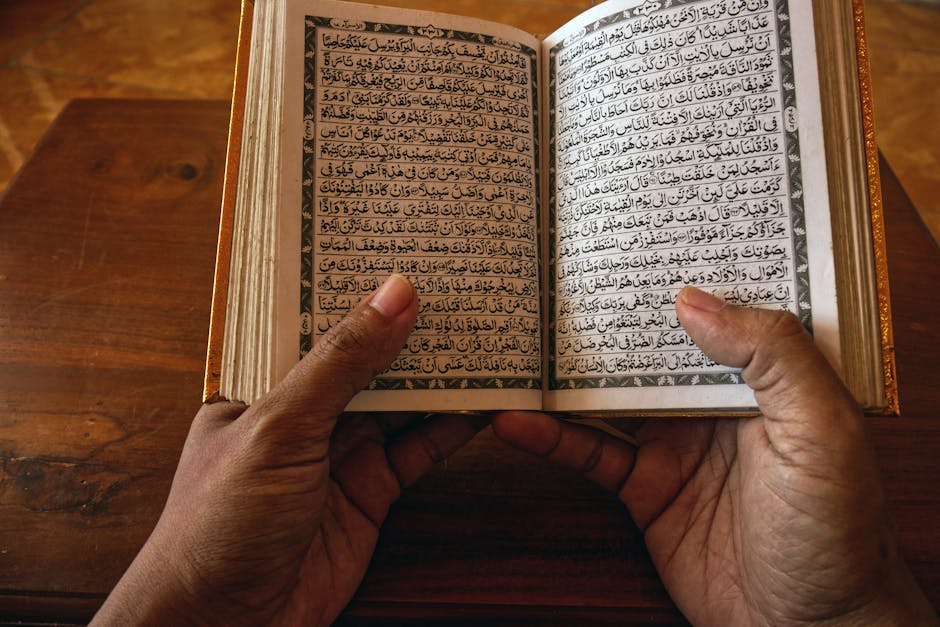 وَاِنْ مِّنْ قَرْيَةٍ اِلَّا نَحْنُ مُهْلِكُوْهَا قَبْلَ يَوْمِ الْقِيٰمَةِ اَوْ
عَذَابًا شَدِيْدًا كَانَ ذٰلِكَ فِى الْكِتٰبِ مَسْطُوْرًا
اَنْ نُّرْسِلَ بِالْاٰيٰتِ اِلَّا اَنْ كَذَّبَ بِهَا الْاَوَّلُوْنَ
ثَمُوْدَ النَّاقَةَ مُبْصِرَةً فَظَلَمُوْا بِهَا وَمَا نُرْسِلُ بِالْاٰيٰتِ
تَخْوِيْفًا وَاِذْ قُلْنَا لَكَ اِنَّ رَبَّكَ اَحَاطَ بِالنَّاسِ
الرُّءْيَا الَّتِىْ اَرَيْنٰكَ اِلَّا فِتْنَةً لِّلنَّاسِ وَالشَّجَرَةَ
فِى الْقُرْاٰنِ وَنُخَوِّفُهُمْ فَمَا يَزِيْدُهُمْ اِلَّا طُغْيَانًا
وَاِذْ قُلْنَا لِلْمَلٰٓئِكَةِ اسْجُدُوْا لِاٰدَمَ فَسَجَدُوْٓا اِلَّآ اِبْلِيْسَ
ءَاَسْجُدُ لِمَنْ خَلَقْتَ طِيْنًا قَالَ اَرَءَيْتَكَ هٰذَا الَّذِىْ
كَرَّمْتَ عَلَىَّ لَئِنْ اَخَّرْتَنِ اِلٰى يَوْمِ الْقِيٰمَةِ لَاَحْتَنِكَنَّ
اِلَّا قَلِيْلًا قَالَ اذْهَبْ فَمَنْ تَبِعَكَ مِنْهُمْ فَاِنَّ
جَزَآؤُكُمْ جَزَآءً مَّوْفُوْرًا وَاسْتَفْزِزْ مَنِ اسْتَطَعْتَ
بِصَوْتِكَ وَاَجْلِبْ عَلَيْهِمْ بِخَيْلِكَ وَرَجِلِكَ وَشَارِكْهُمْ
الْاَمْوَالِ وَالْاَوْلَادِ وَعِدْهُمْ وَمَا يَعِدُهُمُ الشَّيْطٰنُ اِلَّا غُرُوْرًا
اِنَّ عِبَادِىْ لَيْسَ سُلْطٰنٌ وَكَفٰى بِرَبِّكَ وَكِيْلًا
الْبَحْرِ لِتَبْتَغُوْا مِنْ فَضْلِهٖ اِنَّهٗ
مَسَّكُمُ الضُّرُّ فِى الْبَحْرِ ضَلَّ مَنْ
نَجّٰىكُمْ اِلَى الْبَرِّ اَعْرَضْتُمْ وَكَانَ الْاِنْسَانُ كَفُوْرًا
اَفَاَمِنْتُمْ اَنْ يَّخْسِفَ بِكُمْ جَانِبَ الْبَرِّ اَوْ يُرْسِلَ عَلَيْكُمْ حَاصِبًا
ثُمَّ لَا تَجِدُوْا لَكُمْ وَكِيْلًا اَمْ اَمِنْتُمْ اَنْ يُّعِيْدَكُمْ فِيْهِ تَارَةً
اُخْرٰى فَيُرْسِلَ عَلَيْكُمْ قَاصِفًا مِّنَ الرِّيْحِ فَيُغْرِقَكُمْ بِمَا كَفَرْتُمْ
ثُمَّ لَا تَجِدُوْا لَكُمْ عَلَيْنَا بِهٖ تَبِيْعًا وَلَقَدْ كَرَّمْنَا بَنِىْٓ اٰدَمَ وَ
حَمَلْنٰهُمْ فِى الْبَرِّ وَالْبَحْرِ وَرَزَقْنٰهُمْ مِّنَ الطَّيِّبٰتِ وَفَضَّلْنٰهُمْ
عَلٰى كَثِيْرٍ مِّمَّنْ خَلَقْنَا تَفْضِيْلًا يَوْمَ نَدْعُوْا كُلَّ اُنَاسٍ
بِاِمَامِهِمْ فَمَنْ اُوْتِىَ كِتٰبَهٗ بِيَمِيْنِهٖ فَاُولٰٓئِكَ يَقْرَءُوْنَ كِتٰبَهُمْ
وَلَا يُظْلَمُوْنَ فَتِيْلًا وَمَنْ كَانَ فِىْ هٰذِهٖٓ اَعْمٰى فَهُوَ فِى
الْاٰخِرَةِ اَعْمٰى وَاَضَلُّ سَبِيْلًا وَاِنْ كَادُوْا لَيَفْتِنُوْنَكَ
عَنِ الَّذِىْٓ اَوْحَيْنَآ اِلَيْكَ لِتَفْتَرِىَ عَلَيْنَا غَيْرَهٗ وَاِذًا
لَّاتَّخَذُوْكَ خَلِيْلًا وَلَوْلَآ اَنْ ثَبَّتْنٰكَ لَقَدْ كِدْتَّ تَرْكَنُ اِلَيْهِمْ
شَيْئًا قَلِيْلًا اِذًا لَّاَذَقْنٰكَ ضِعْفَ الْحَيٰوةِ وَضِعْفَ الْمَمَاتِ
ثُمَّ لَا تَجِدُ لَكَ عَلَيْنَا نَصِيْرًا وَاِنْ كَادُوْا لَيَسْتَفِزُّوْنَكَ مِنَ
الْاَرْضِ لِيُخْرِجُوْكَ مِنْهَا وَاِذًا لَّا اِلَّا قَلِيْلًا
سُنَّةَ مَنْ قَدْ اَرْسَلْنَا قَبْلَكَ مِنْ لِسُنَّتِنَا
تَحْوِيْلًا اَقِمِ الصَّلٰوةَ لِدُلُوْكِ الشَّمْسِ
وَقُرْاٰنَ الْفَجْرِ اِنَّ قُرْاٰنَ الْفَجْرِ كَانَ
فَتَهَجَّدْ بِهٖ نَافِلَةً لَّكَ عَسٰٓى اَنْ يَّبْعَثَكَ